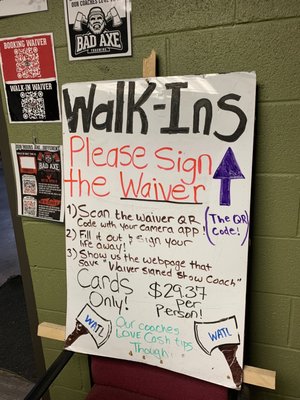 OUR COACHES LOVE
BAD AXE
THROWING
BOOKING WAIVER
WALK-IN WAIVER
Walk-Ins
Please Sign
the Waiver
1) Scan the Waiver QR
Code with your camera app!
(The QR
Code!)
2) Fill it out & Sign your
life away!
3) Show us the webpage that
says "Waiver signed Show Coach"
Cards
Only!
$29.37
Per
Person!
WATL
WATL
Our coaches
LOVE Cash tips
Though!